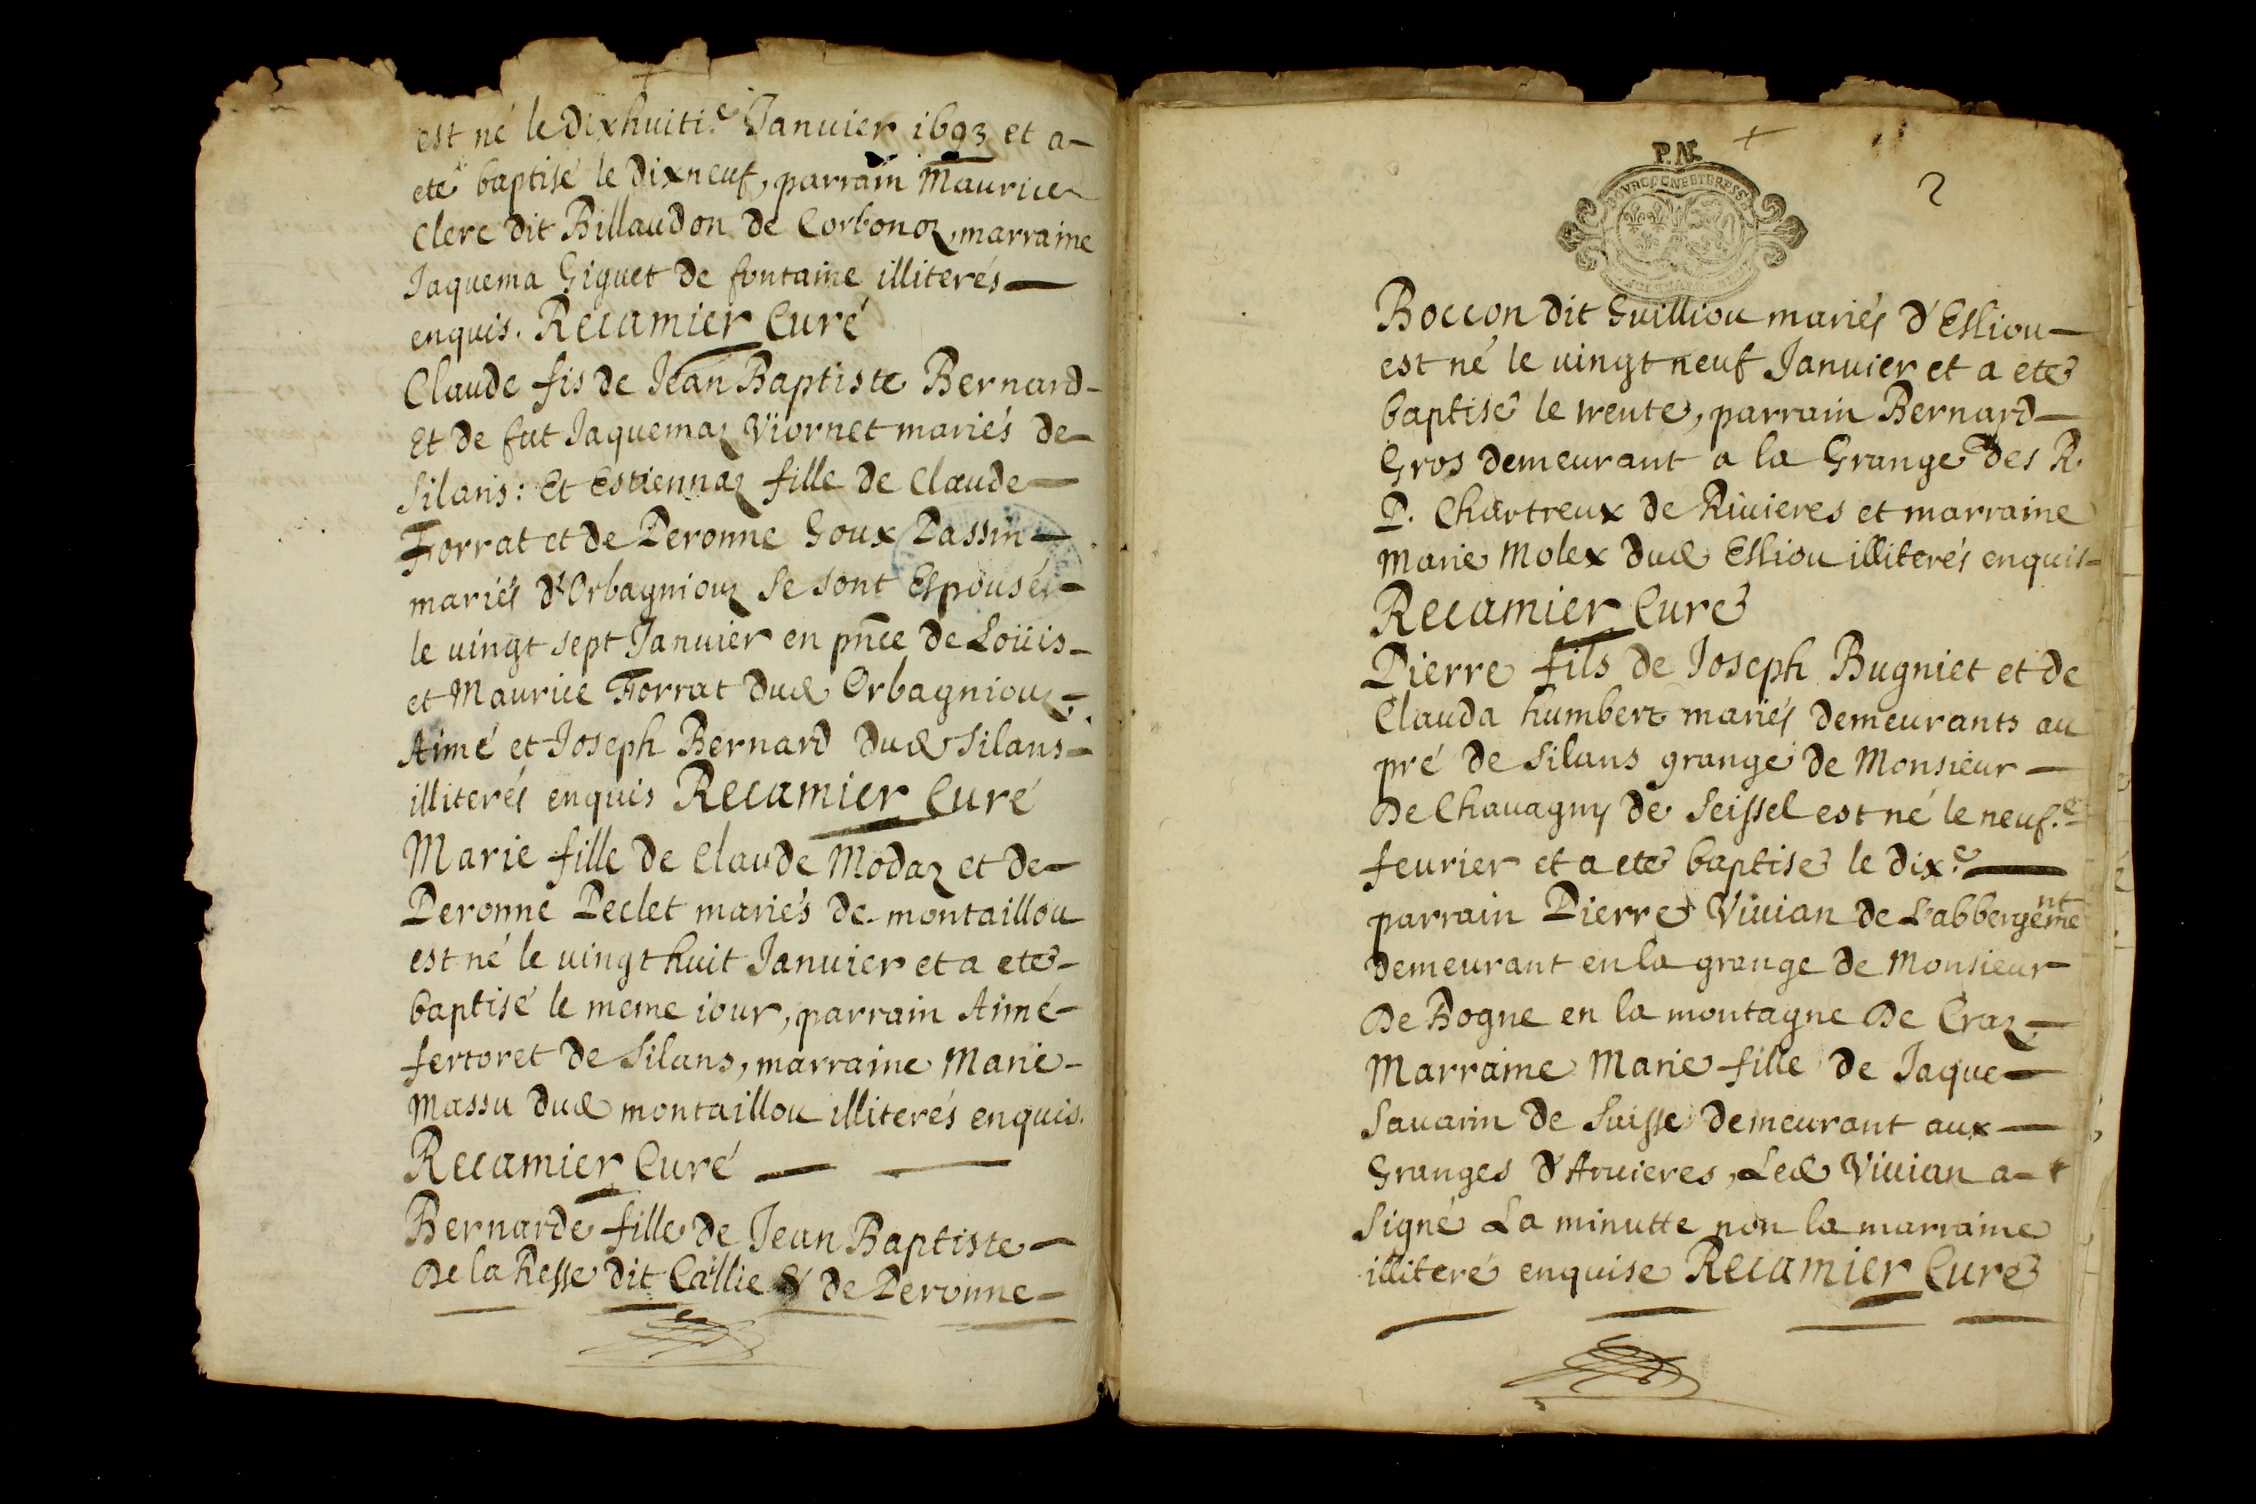 est né le dixhuiti.e Janvier 1693 et a
eté baptisé le dixneuf, parrain Maurice
Clerc dit Billaudon de Corbonoz, marraine
Jaquema Giguet de fontaine illiterés
enquis. Recamier Curé
Claude fis de Jean Baptiste Bernard
Et de fut Jaquemaz Viornet mariés de
Silans: Et Estiennaz fille de Claude
Forrat et de Peronne Goux Passin
mariés d'Orbagniouz se sont Espousés
le vingt sept Januier en pnce de Loüis
et Maurice Forrat dud Orbagniouz,
Aimé et Joseph Bernard dud Silans
illiterés enquis Recamier Curé
Marie fille de Claude Modaz et de
Peronne Peclet mariés de montaillou
est né le vingt huit Januier et a eté
baptisé le meme iour, parrain Aimé
fertoret de Silans, marraine Marie
Massu dud montaillou illiterés enquis.
Recamier Curé
Bernarde fille de Jean Baptiste
de la Resse dit Caillie & de Peronne
P.N.
2
Boccon dit Guilliou mariés d'Esliou
est né le uingt neuf Januier et a eté
baptisé le trente, parrain Bernard
Gros demeurant a la Grange des R.
P. Chartreux de Riuieres et marraine
Marie Molex dud Esliou illiterés enquis
Recamier Curé
Pierre fils de Joseph Bugniet et de
Clauda humbert mariés demeurants au
pré de Silans grange de Monsieur
de Chauagny de Seissel est né le neuf.e
feurier et a eté baptisé le dix.e
parrain Pierre Viuian de L'abbergement
demeurant en la grange de Monsieur
de Bogne en la montagne de Craz,
Marraine Marie fille de Jaque
Sauarin de Suisse demeurant aux
Granges d'Aruieres, Led Viuian a
signé La minutte non la marraine
illiteré enquise Recamier Curé